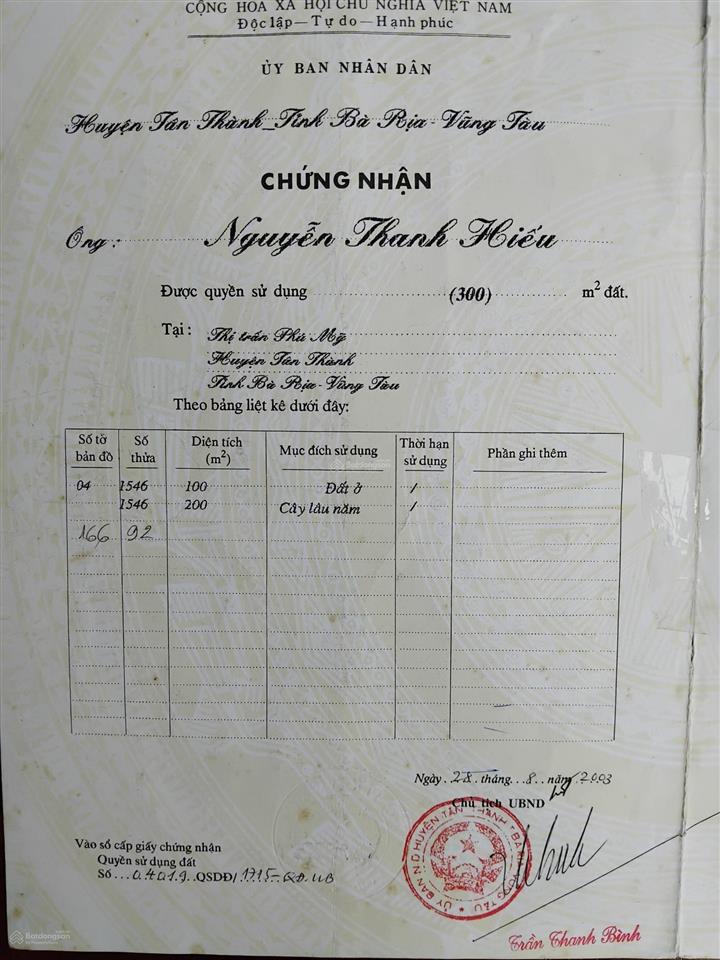 CỘNG HÒA XÃ HỘI CHỦ NGHĨA VIỆT NAM
Độc lập — Tự do — Hạnh phúc
ỦY BAN NHÂN DÂN
Huyện Tân Thành_Tỉnh Bà Rịa-Vũng Tàu
CHỨNG NHẬN
Ông: Nguyễn Thanh Hiếu
Được quyền sử dụng (300) m² đất.
Tại: Thị trấn Phú Mỹ
Huyện Tân Thành
Tỉnh Bà Rịa-Vũng Tàu
Theo bảng liệt kê dưới đây:
Số tờ bản đồ Số thửa Diện tích (m²) Mục đích sử dụng Thời hạn sử dụng Phần ghi thêm
04 1546 100 Đất ở /
1546 200 Cây lâu năm /
166 92
Ngày 28 tháng 8 năm 2003
Chủ tịch UBND
Vào sổ cấp giấy chứng nhận
Quyền sử dụng đất
Số 04019 QSDĐ/1715-QĐ.UB
Trần Thanh Bình
Batdongsan